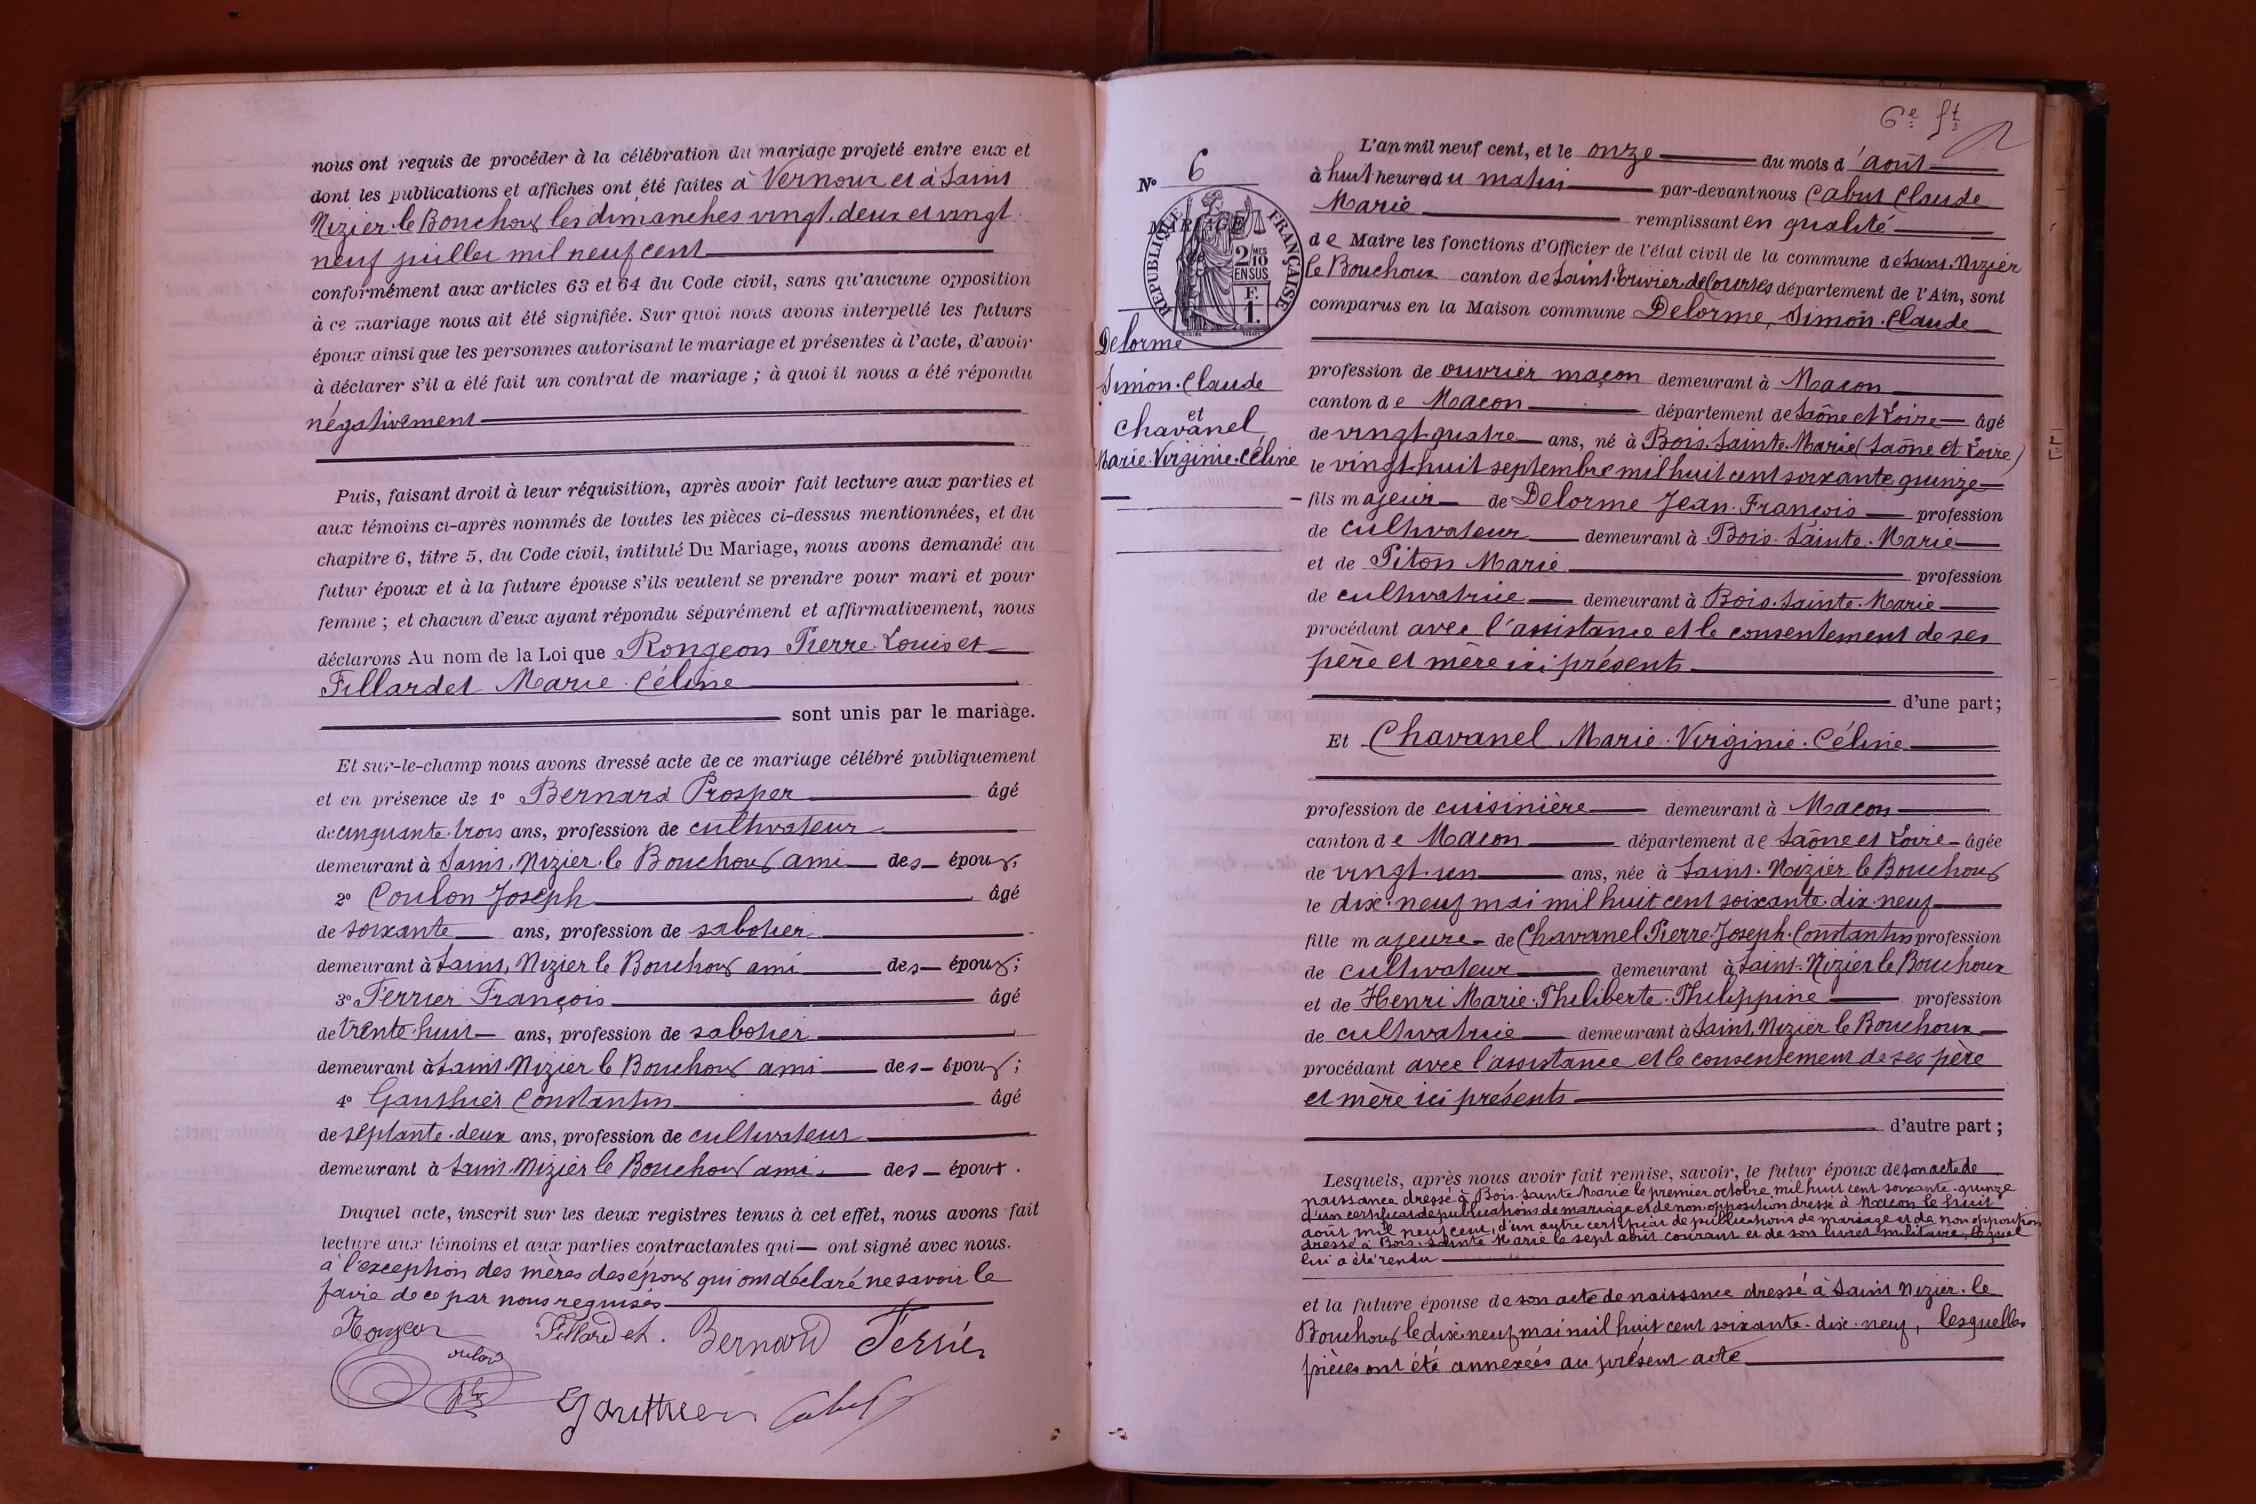 nous ont requis de procéder à la célébration du mariage projeté entre eux et
dont les publications et affiches ont été faites à Vernoux et à Saint
Nizier-le Bouchoux les dimanches vingt-deux et vingt
neuf juillet mil neuf cent
conformément aux articles 63 et 64 du Code civil, sans qu'aucune opposition
à ce mariage nous ait été signifiée. Sur quoi nous avons interpellé les futurs
époux ainsi que les personnes autorisant le mariage et présentes à l'acte, d'avoir
à déclarer s'il a été fait un contrat de mariage ; à quoi il nous a été répondu
négativement
Puis, faisant droit à leur réquisition, après avoir fait lecture aux parties et
aux témoins ci-après nommés de toutes les pièces ci-dessus mentionnées, et du
chapitre 6, titre 5, du Code civil, intitulé Du Mariage, nous avons demandé au
futur époux et à la future épouse s'ils veulent se prendre pour mari et pour
femme ; et chacun d'eux ayant répondu séparément et affirmativement, nous
déclarons Au nom de la Loi que Rongeon Pierre-Louis et
Fillardet Marie-Céline
sont unis par le mariage.
Et sur-le-champ nous avons dressé acte de ce mariage célébré publiquement
et en présence de 1° Bernard Prosper âgé
de cinquante-trois ans, profession de cultivateur
demeurant à Saint-Nizier-le Bouchoux ami des époux;
2° Coulon Joseph âgé
de soixante ans, profession de sabotier
demeurant à Saint-Nizier le Bouchoux ami des époux;
3° Ferrier François âgé
de trente-huit ans, profession de sabotier
demeurant à Saint-Nizier le Bouchoux ami des époux;
4° Gauthier Constantin âgé
de septante-deux ans, profession de cultivateur
demeurant à Saint-Nizier le Bouchoux ami des époux.
Duquel acte, inscrit sur les deux registres tenus à cet effet, nous avons fait
lecture aux témoins et aux parties contractantes qui ont signé avec nous.
à l'exception des mères des époux qui ont déclaré ne savoir le
faire de ce par nous requises
Rongeon Fillardet. Bernard Ferrier
Gauthier Cabut
6e ft
N° 6
MARIAGE
RÉPUBLIQUE FRANÇAISE
2/10 MES
EN SUS
F.
1.
Delorme
Simon-Claude
et
Chavanel
Marie-Virginie-Céline
L'an mil neuf cent, et le onze du mois d'août
à huit heures du matin par-devant nous Cabut Claude
Marie remplissant en qualité
de Maire les fonctions d'Officier de l'état civil de la commune de Saint-Nizier
le Bouchoux canton de Saint-Trivier de Courtes département de l'Ain, sont
comparus en la Maison commune Delorme, Simon-Claude
profession de ouvrier maçon demeurant à Macon
canton de Macon département de Saône et Loire âgé
de vingt-quatre ans, né à Bois-Sainte-Marie (Saône et Loire)
le vingt-huit septembre mil huit cent soixante quinze
fils majeur de Delorme Jean-François profession
de cultivateur demeurant à Bois-Sainte-Marie
et de Piton Marie profession
de cultivatrice demeurant à Bois-Sainte-Marie
procédant avec l'assistance et le consentement de ses
père et mère ici présents
d'une part;
Et Chavanel Marie-Virginie-Céline
profession de cuisinière demeurant à Macon
canton de Macon département de Saône et Loire âgée
de vingt-un ans, née à Saint-Nizier le Bouchoux
le dix-neuf mai mil huit cent soixante-dix-neuf
fille majeure de Chavanel Pierre-Joseph-Constantin profession
de cultivateur demeurant à Saint-Nizier le Bouchoux
et de Henri Marie-Philiberte-Philippine profession
de cultivatrice demeurant à Saint-Nizier le Bouchoux
procédant avec l'assistance et le consentement de ses père
et mère ici présents
d'autre part;
Lesquels, après nous avoir fait remise, savoir, le futur époux de son acte de
naissance dressé à Bois-Sainte Marie le premier octobre mil huit cent soixante-quinze
d'un certificat de publications de mariage et de non opposition dressé à Macon le huit
août mil neuf cent, d'un autre certificat de publications de mariage et de non opposition
dressé à Bois-Sainte Marie le sept août courant et de son livret militaire, lequel
lui a été rendu
et la future épouse de son acte de naissance dressé à Saint Nizier-le
Bouchoux le dix-neuf mai mil huit cent soixante-dix-neuf, lesquelles
pièces ont été annexées au présent acte